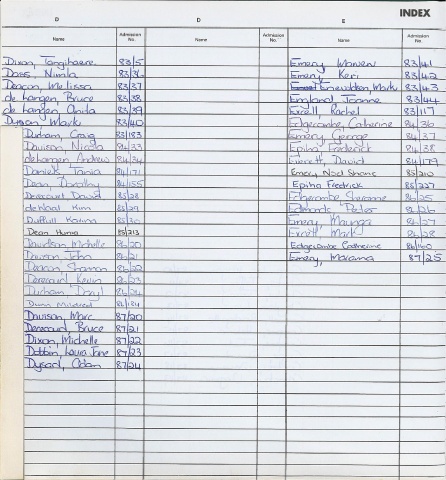 INDEX
D D E
Name Admission No. Name Admission No. Name Admission No.
Dixon, 83/5
Doss, Nimla 83/36
Deacon, Melissa 83/37
de Langen, Bruce 83/38
de Langen, Anita 83/39
Dyson, Mark 83/40
Durham, Craig 83/183
Davison, Nicola 84/33
de Langen Andrew 84/34
Daniels, Tania 84/171
Dean, Dorothy 84/155
Derecourt David 85/28
de Waal Kim 85/29
Duffull Karina 85/30
Dean Huria 85/213
Davidson, Michelle 86/20
Davison, John 86/21
Deacon, Sharron 86/22
Derecourt Kevin 86/23
Durham Daryl
Dunn Mildred 86/184
Davison, Marc 87/20
Derecourt, Bruce 87/21
Dixon, Michelle 87/22
Dobbin, Laura Jane 87/23
Dysart, Adam 87/24
Emery 83/41
Emery Keri 83/42
Mark 83/43
England, Joanne 83/44
Everitt, Rachel 83/117
Edgecombe, Catherine 84/36
Emery, George 84/37
Epiha Frederick 84/38
Everett, David 84/179
Emery Noel Shane 85/210
Epiha Fredrick 85/227
Edgecombe 86/25
Edmonds Peter 86/26
Emery, 86/27
Everitt, Mark 86/28
Edgecombe Catherine 86/160
Emery, Marama 87/25